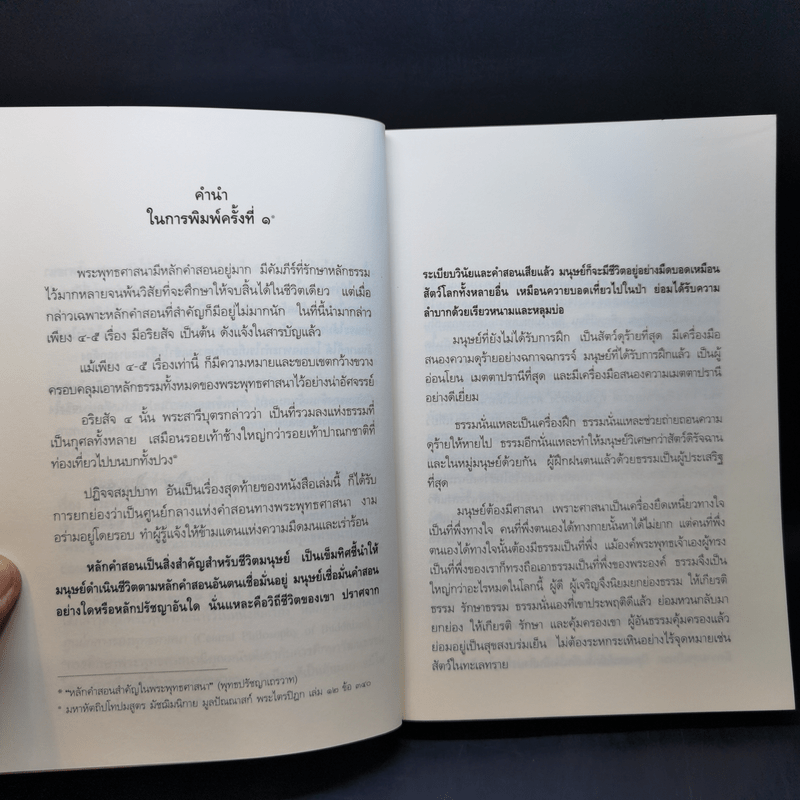 คำนำ
ในการพิมพ์ครั้งที่ ๑*
พระพุทธศาสนามีหลักคำสอนอยู่มาก มีคัมภีร์ที่รักษาหลักธรรม
ไว้มากหลายจนพ้นวิสัยที่จะศึกษาให้จบสิ้นได้ในชีวิตเดียว แต่เมื่อ
กล่าวเฉพาะหลักคำสอนที่สำคัญก็มีอยู่ไม่มากนัก ในที่นี้นำมากล่าว
เพียง ๔-๕ เรื่อง มีอริยสัจ เป็นต้น ดังแจ้งในสารบัญแล้ว
แม้เพียง ๔-๕ เรื่องเท่านี้ ก็มีความหมายและขอบเขตกว้างขวาง
ครอบคลุมเอาหลักธรรมทั้งหมดของพระพุทธศาสนาไว้อย่างน่าอัศจรรย์
อริยสัจ ๔ นั้น พระสารีบุตรกล่าวว่า เป็นที่รวมลงแห่งธรรมที่
เป็นกุศลทั้งหลาย เสมือนรอยเท้าช้างใหญ่กว่ารอยเท้าปาณกชาติที่
ท่องเที่ยวไปบนบกทั้งปวง*
ปฏิจจสมุปบาท อันเป็นเรื่องสุดท้ายของหนังสือเล่มนี้ ก็ได้รับ
การยกย่องว่าเป็นศูนย์กลางแห่งคำสอนทางพระพุทธศาสนา งาม
อร่ามอยู่โดยรอบ ทำผู้รู้แจ้งให้ข้ามแดนแห่งความมืดมนและเร่าร้อน
หลักคำสอนเป็นสิ่งสำคัญสำหรับชีวิตมนุษย์ เป็นเข็มทิศชี้นำให้
มนุษย์ดำเนินชีวิตตามหลักคำสอนอันตนเชื่อมั่นอยู่ มนุษย์เชื่อมั่นคำสอน
อย่างใดหรือหลักปรัชญาอันใด นั่นแหละคือวิถีชีวิตของเขา ปราศจาก
* "หลักคำสอนสำคัญในพระพุทธศาสนา" (พุทธปรัชญาเถรวาท)
* มหาหัตถิปโทปมสูตร มัชฌิมนิกาย มูลปัณณาสก์ พระไตรปิฎก เล่ม ๑๒ ข้อ ๓๔๐
ระเบียบวินัยและคำสอนเสียแล้ว มนุษย์ก็จะมีชีวิตอยู่อย่างมืดบอดเหมือน
สัตว์โลกทั้งหลายอื่น เหมือนควายบอดเที่ยวไปในป่า ย่อมได้รับความ
ลำบากด้วยเรียวหนามและหลุมบ่อ
มนุษย์ที่ยังไม่ได้รับการฝึก เป็นสัตว์ดุร้ายที่สุด มีเครื่องมือ
สนองความดุร้ายอย่างฉกาจฉกรรจ์ มนุษย์ที่ได้รับการฝึกแล้ว เป็นผู้
อ่อนโยน เมตตาปรานีที่สุด และมีเครื่องมือสนองความเมตตาปรานี
อย่างดีเยี่ยม
ธรรมนั่นแหละเป็นเครื่องฝึก ธรรมนั่นแหละช่วยถ่ายถอนความ
ดุร้ายให้หายไป ธรรมอีกนั่นแหละทำให้มนุษย์วิเศษกว่าสัตว์ดิรัจฉาน
และในหมู่มนุษย์ด้วยกัน ผู้ฝึกฝนตนแล้วด้วยธรรมเป็นผู้ประเสริฐ
ที่สุด
มนุษย์ต้องมีศาสนา เพราะศาสนาเป็นเครื่องยึดเหนี่ยวทางใจ
เป็นที่พึ่งทางใจ คนที่พึ่งตนเองได้ทางกายนั้นหาได้ไม่ยาก แต่คนที่พึ่ง
ตนเองได้ทางใจนั้นต้องมีธรรมเป็นที่พึ่ง แม้องค์พระพุทธเจ้าเองผู้ทรง
เป็นที่พึ่งของเราก็ทรงถือเอาธรรมเป็นที่พึ่งของพระองค์ ธรรมจึงเป็น
ใหญ่กว่าอะไรหมดในโลกนี้ ผู้ดี ผู้เจริญจึงนิยมยกย่องธรรม ให้เกียรติ
ธรรม รักษาธรรม ธรรมนั่นเองที่เขาประพฤติดีแล้ว ย่อมหวนกลับมา
ยกย่อง ให้เกียรติ รักษา และคุ้มครองเขา ผู้อันธรรมคุ้มครองแล้ว
ย่อมอยู่เป็นสุขสงบร่มเย็น ไม่ต้องระหกระเหินอย่างไร้จุดหมายเช่น
สัตว์ในทะเลทราย